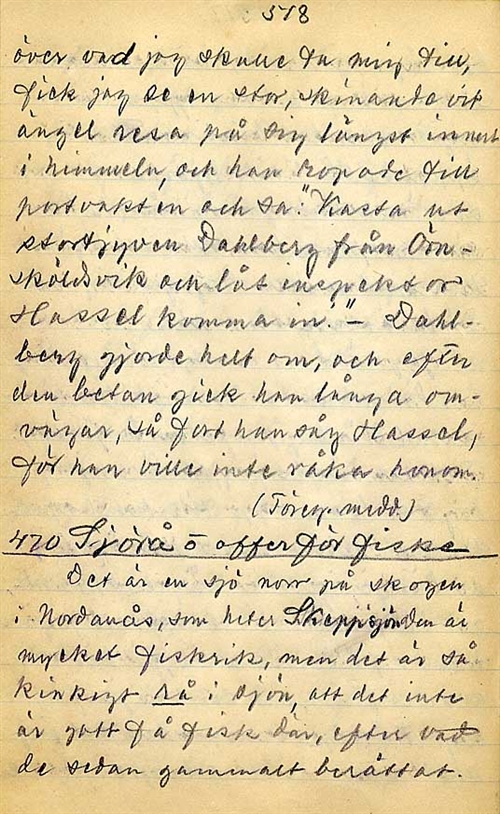 518
över vad jag skulle ta mig till,
fick jag se en stor, skinande vit
ängel resa på sig längst innerst
i himmeln, och han ropade till
portvakten och sa: "Kasta ut
stortjyven Dahlberg från Örn-
sköldsvik och låt inspektor
Hassel komma in." – Dahl-
berg gjorde helt om, och efter
den betan gick han långa om-
vägar, så fort han såg Hassel,
för han ville inte råka honom.
(Föreg. medd.)
470 Sjörå o offer för fiske
Det är en sjö norr på skogen
i Nordanås, som heter Skeppsjön. Den är
mycket fiskrik, men det är så
kinkigt rå i sjön, att det inte
är gott få fisk där, efter vad
de sedan gammalt berättat.